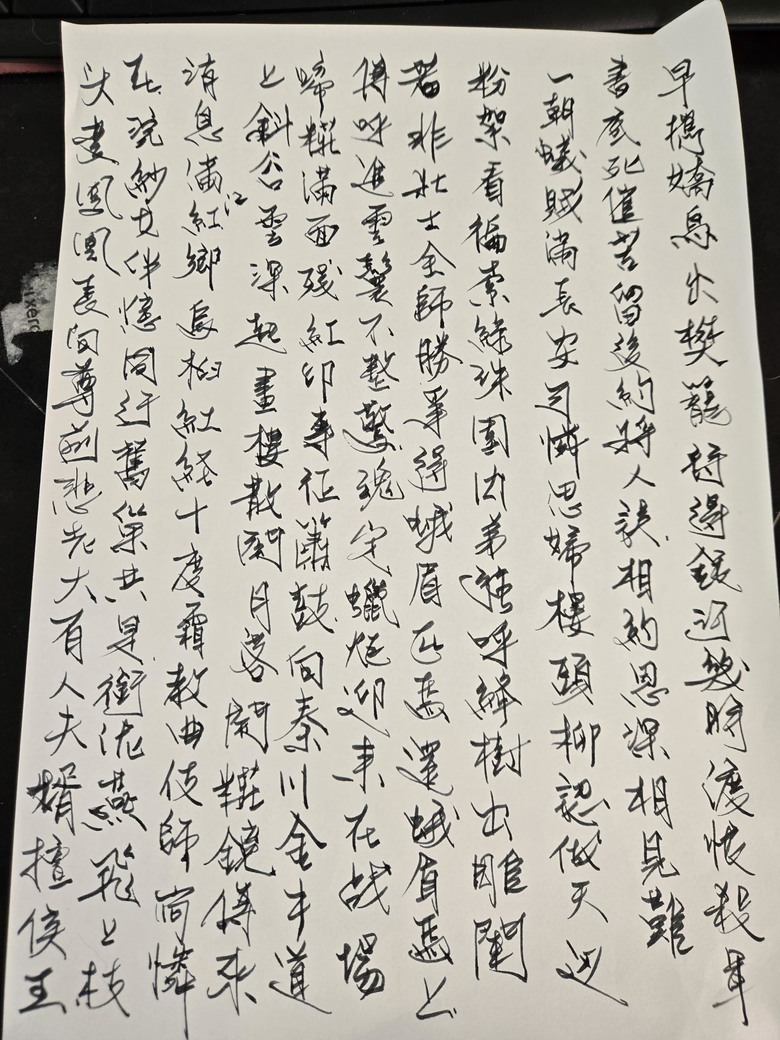 早攜嬌鳥出樊籠待得銀河幾時渡恨殺軍
書底死催苦留後約將人誤相約恩深相見難
一朝蟻賊滿長安可憐思婦樓頭柳認做天边
粉絮看徧索綠珠圍内弟強呼絳樹出雕闌
若非壯士全師勝爭得蛾眉匹馬還蛾眉馬上
傳呼進雲鬟不整驚魂定蠟炬迎来在战場
啼糚滿面残紅印專征簫鼓向秦川金牛道
上斜谷雲深起畫樓散關月落開糚鏡傳来
消息滿江鄉烏桕紅經十度霜教曲伎師尚憐
在浣紗女伴憶同行舊巢共是銜泥燕飛上枝
头变凤凰長向尊前悲老大有人夫婿擅侯王